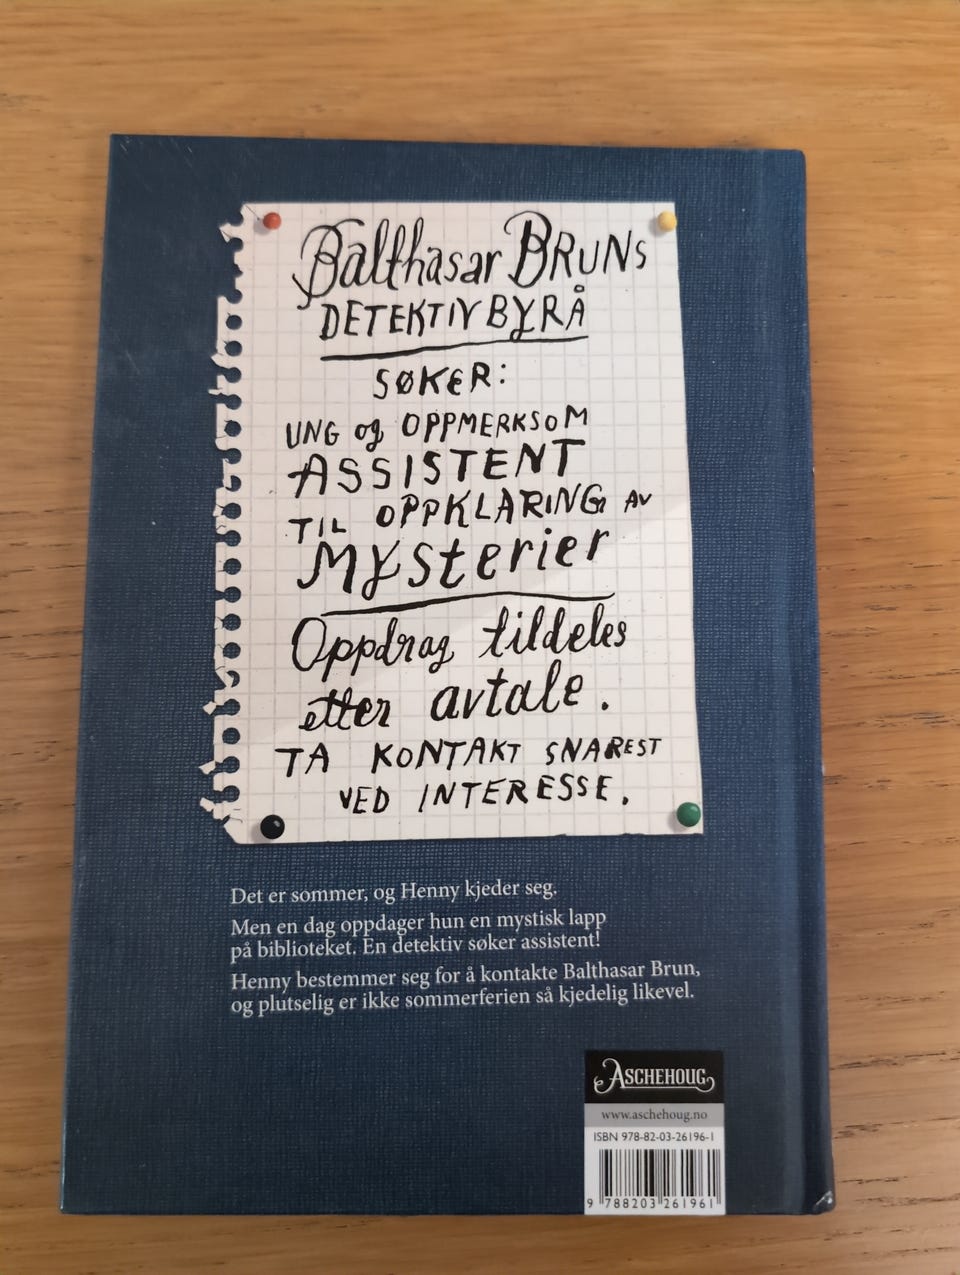 Balthasar BRUNS
DETEKTIVBYRÅ
SØKER:
UNG og OPPMERKSOM
ASSISTENT
TIL OPPKLARING AV
MYSterier
Oppdrag tildeles
etter avtale.
TA KONTAKT SNAREST
VED INTERESSE.
Det er sommer, og Henny kjeder seg.
Men en dag oppdager hun en mystisk lapp
på biblioteket. En detektiv søker assistent!
Henny bestemmer seg for å kontakte Balthasar Brun,
og plutselig er ikke sommerferien så kjedelig likevel.
ASCHEHOUG
www.aschehoug.no
ISBN 978-82-03-26196-1
9 788203 261961